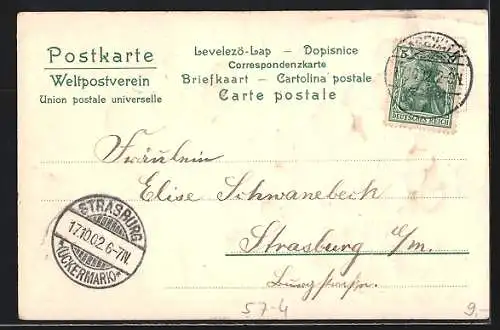 Postkarte
Weltpostverein
Union postale universelle
Levelező-Lap – Dopisnice
Correspondenzkarte
Briefkaart – Cartolina postale
Carte postale
5
DEUTSCHES REICH
Fräulein
Elise Schwanebeck
Strasburg u/m.
STRASBURG
17.10.02.6-7N.
*(UCKERMARK)*
57-4
9,-